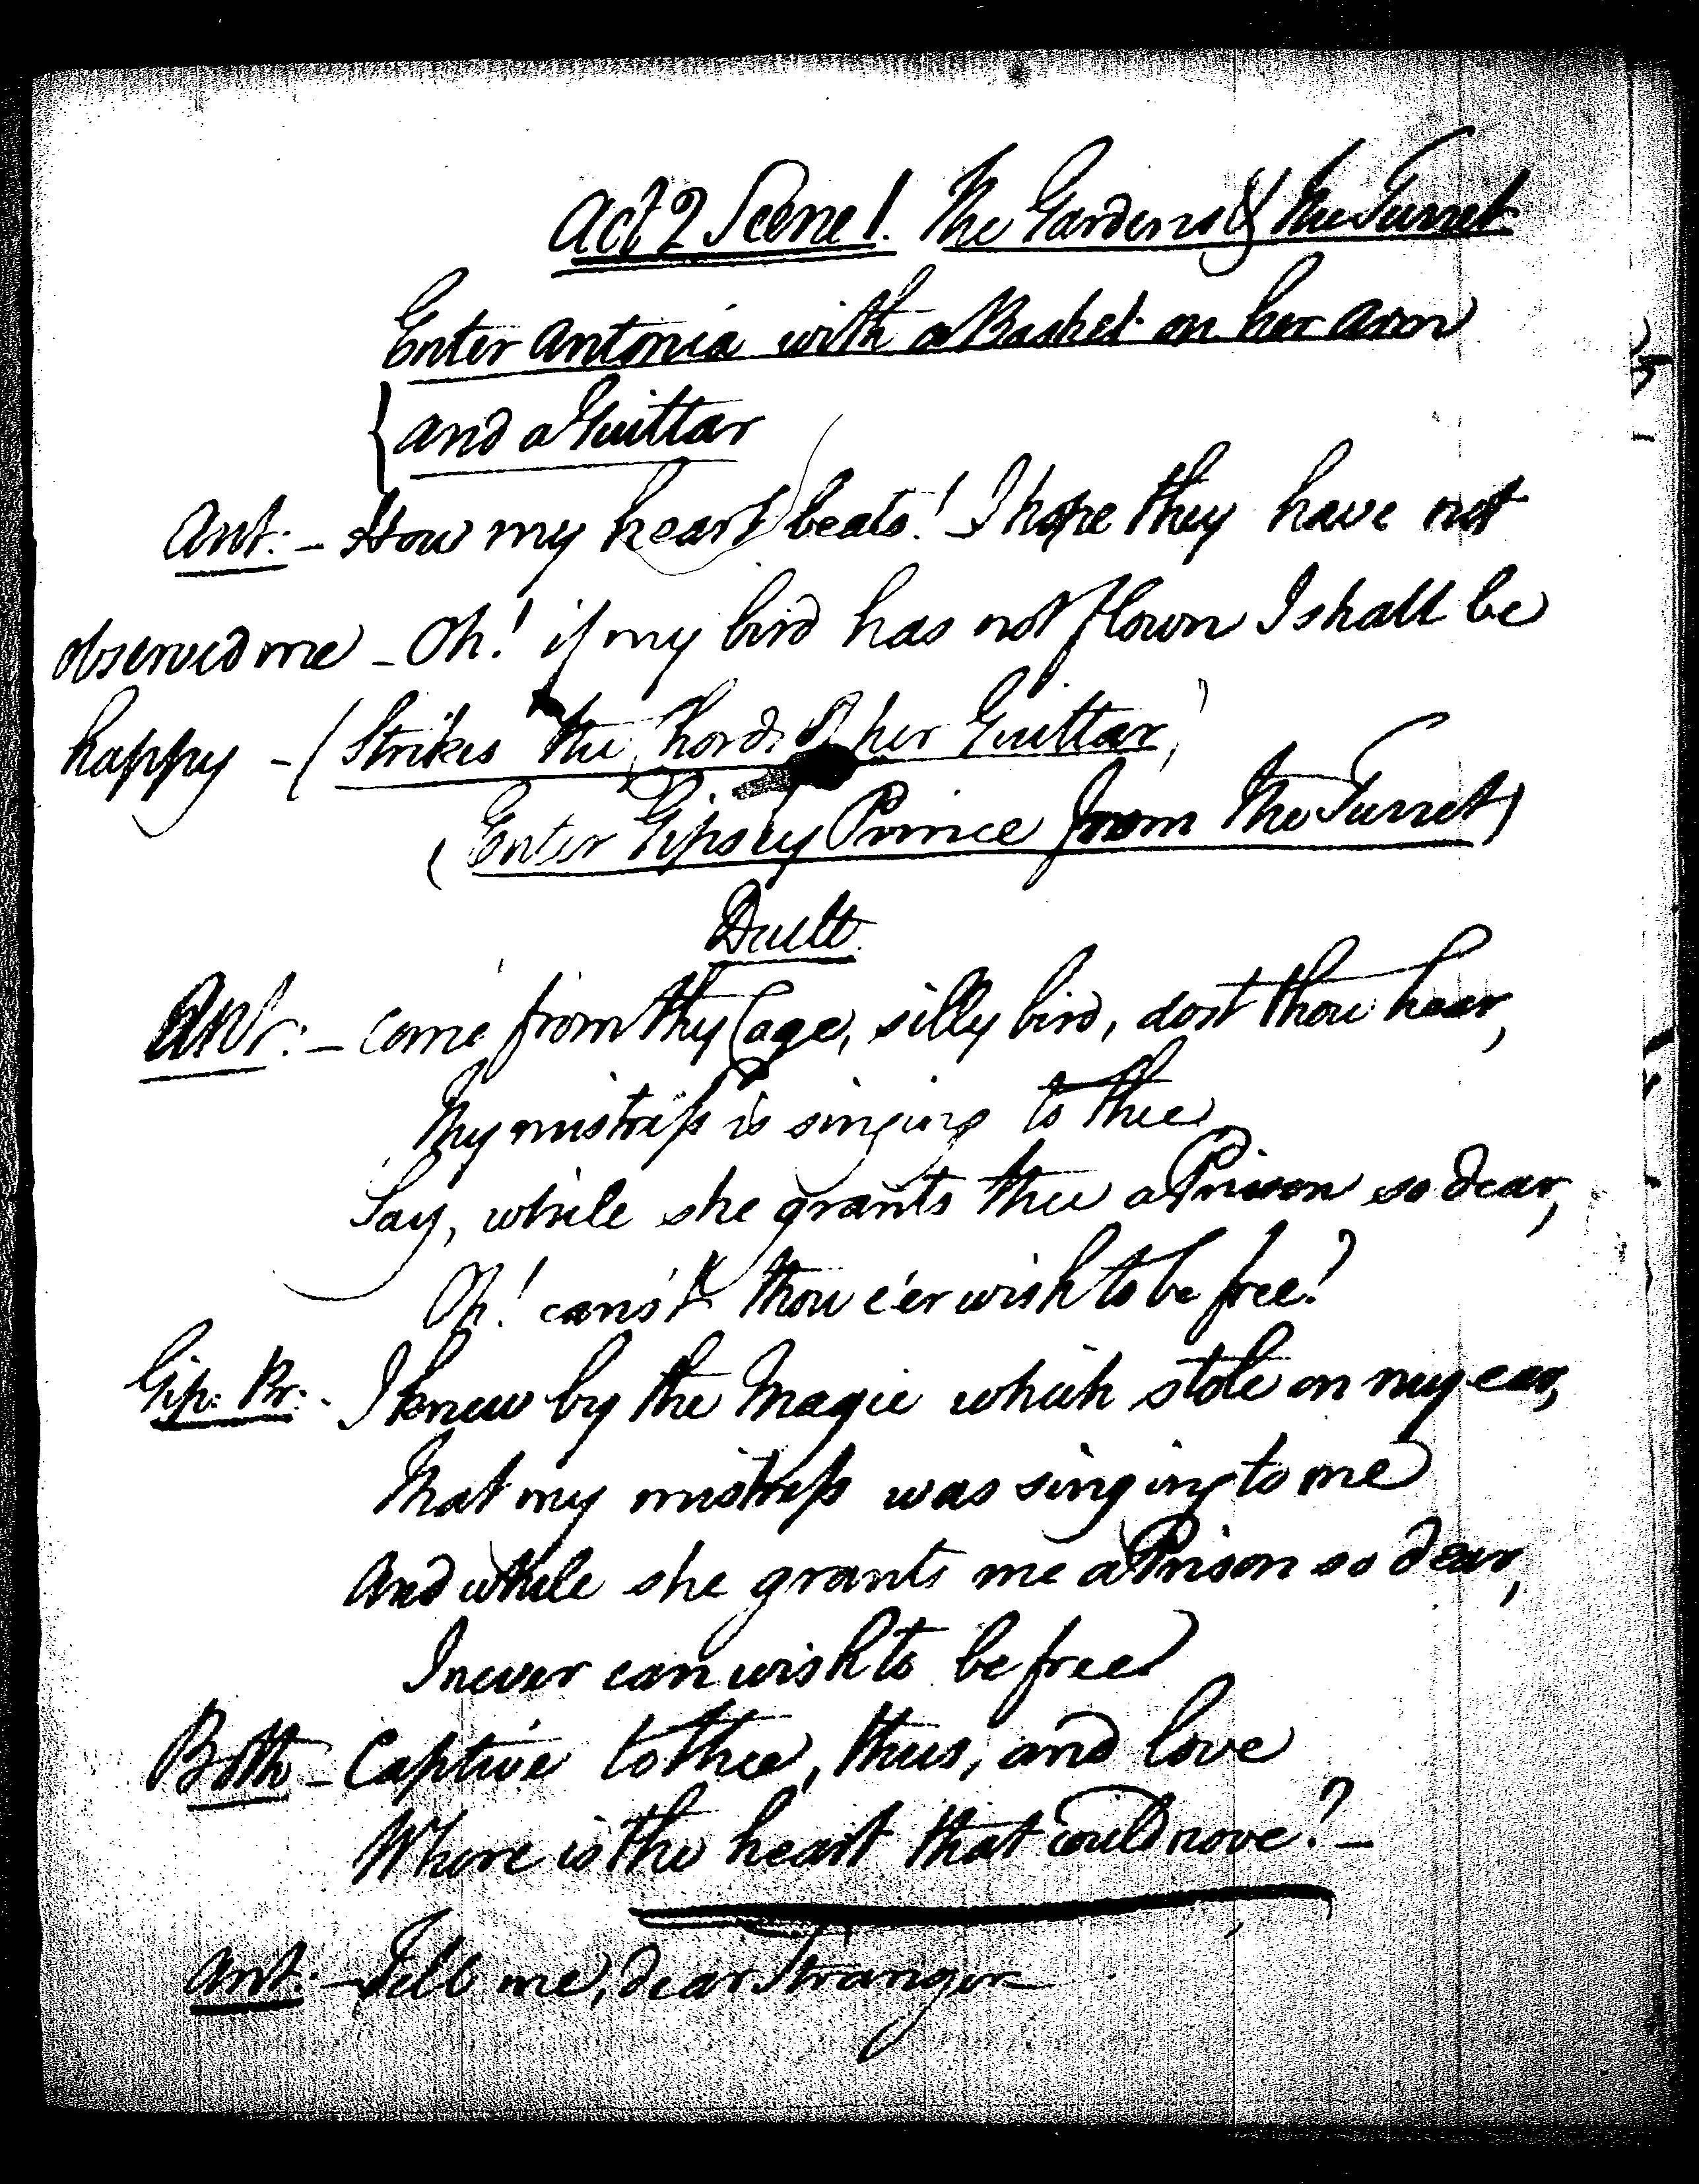 Act 2 Scene 1. The Gardens & the Turret
Enter Antonia with a Basket on her Arm
and a Guittar
Ant: - How my heart beats! I hope they have not
observed me - Oh! if my bird has not flown I shall be
happy - (Strikes the Chords of her Guittar)
(Enter Gipsey Prince from the Turret)
Duett
Ant: - Come from thy Cage, silly bird, dost thou hear,
Thy mistress is singing to thee
Say, while she grants thee a Prison so dear,
Oh! cans't thou e'er wish to be free?
Gip: Pr: - I knew by the Magic which stole on my ear,
That my mistress was singing to me
And while she grants me a Prison so dear,
I never can wish to be free
Both - Captive to thee, thus, and love
Where is the heart that could rove? -
Ant: - Tell me, dear Stranger